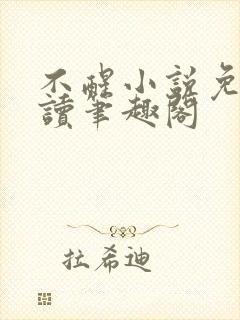 不醒小説免
讀筆趣閣
拉希迪